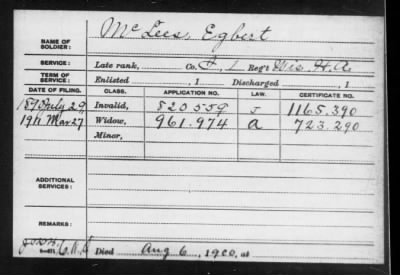 NAME OF SOLDIER: McLees, Egbert
SERVICE: Late rank, Co. F, 1 Reg't Wis. H.A.
TERM OF SERVICE: Enlisted , 1 Discharged , 1
DATE OF FILING. CLASS. APPLICATION NO. LAW. CERTIFICATE NO.
July 29 Invalid, 820.559 J 1165.390
1911 Mar 27 Widow, 961.974 A 723.290
Minor,
ADDITIONAL SERVICES:
REMARKS:
Died Aug 6, 1900, at